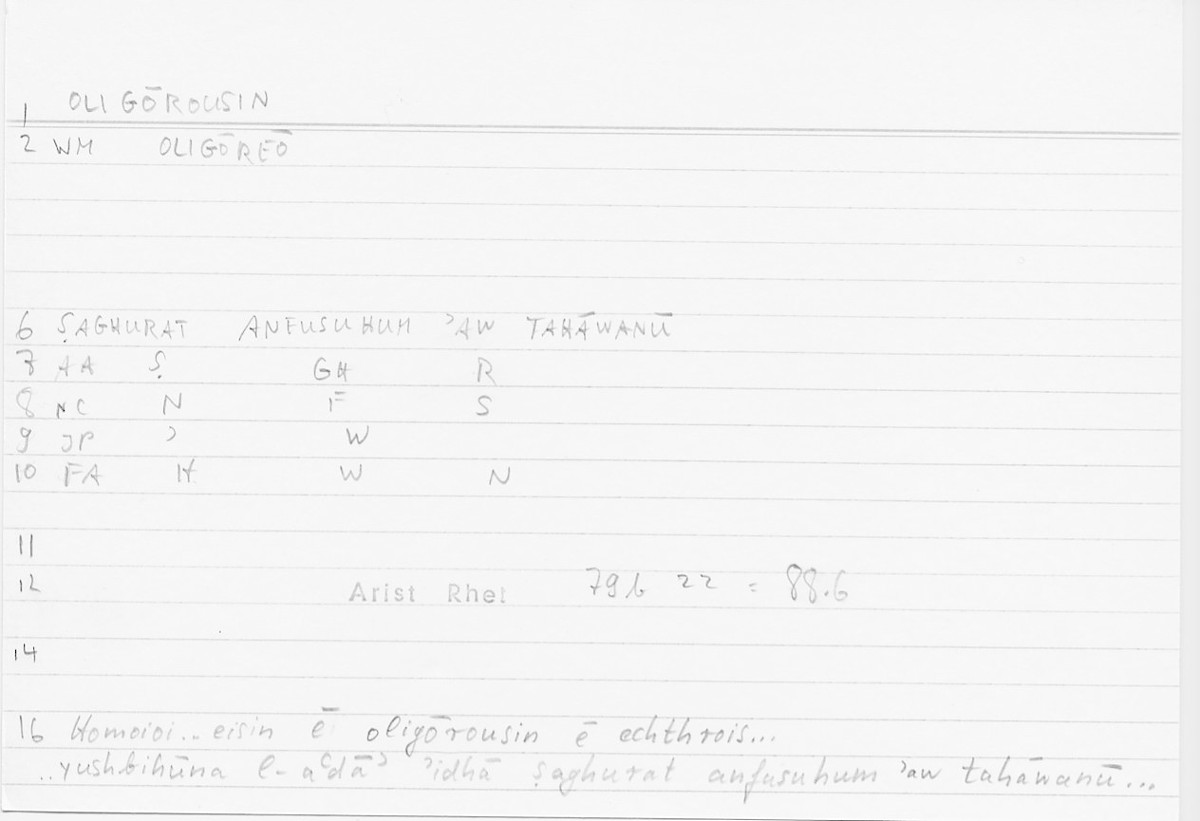 1 OLIGŌROUSIN
2 WM OLIGŌREŌ
6 ṢAGHURAT ANFUSUHUM ʾAW TAHĀWANŪ
7 AA Ṣ GH R
8 NC N F S
9 JP ʾ W
10 FA H W N
11
12 Arist Rhet 79b 22 = 88.6
14
16 Homoioi.. eisin ē oligōrousin ē echthrois...
..yushbihūna l-aʿdāʾ ʾidhā ṣaghurat anfusuhum ʾaw tahāwanū...